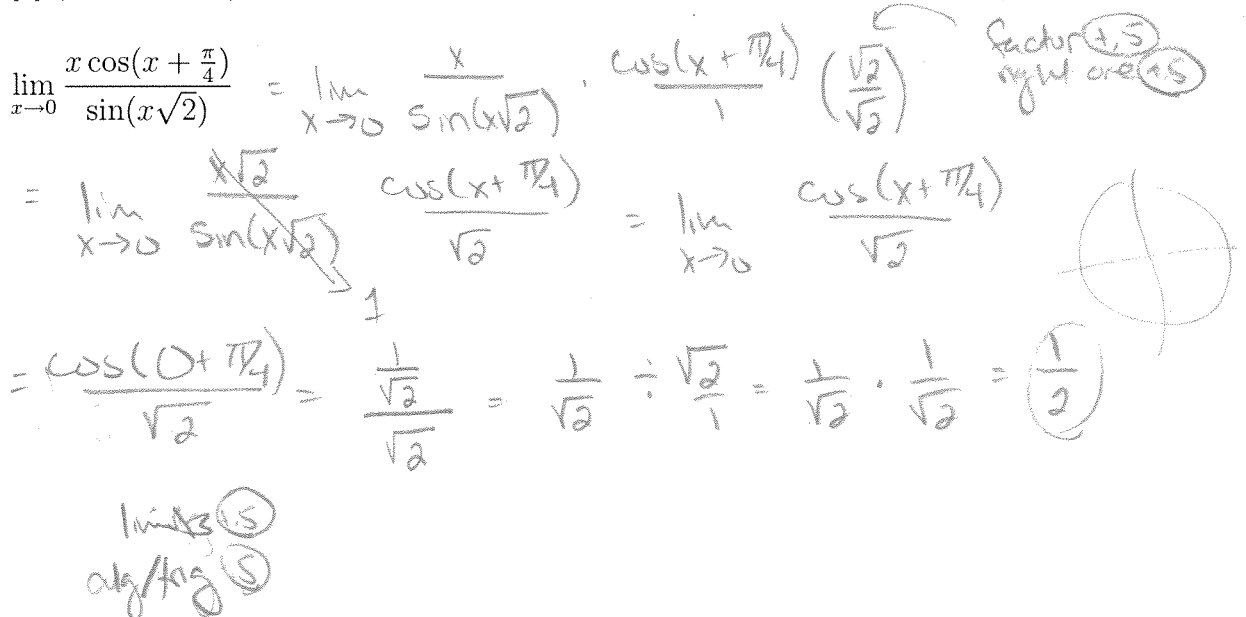 lim x→0 x cos(x + π/4) / sin(x√2) = lim x→0 x / sin(x√2) · cos(x + π/4) / 1 (√2/√2)
factor +.5
right one +.5
= lim x→0 x√2 / sin(x√2) cos(x + π/4) / √2 = lim x→0 cos(x + π/4) / √2
1
= cos(0 + π/4) / √2 = (1/√2) / √2 = 1/√2 ÷ √2/1 = 1/√2 · 1/√2 = 1/2
limits .5
alg/trig .5